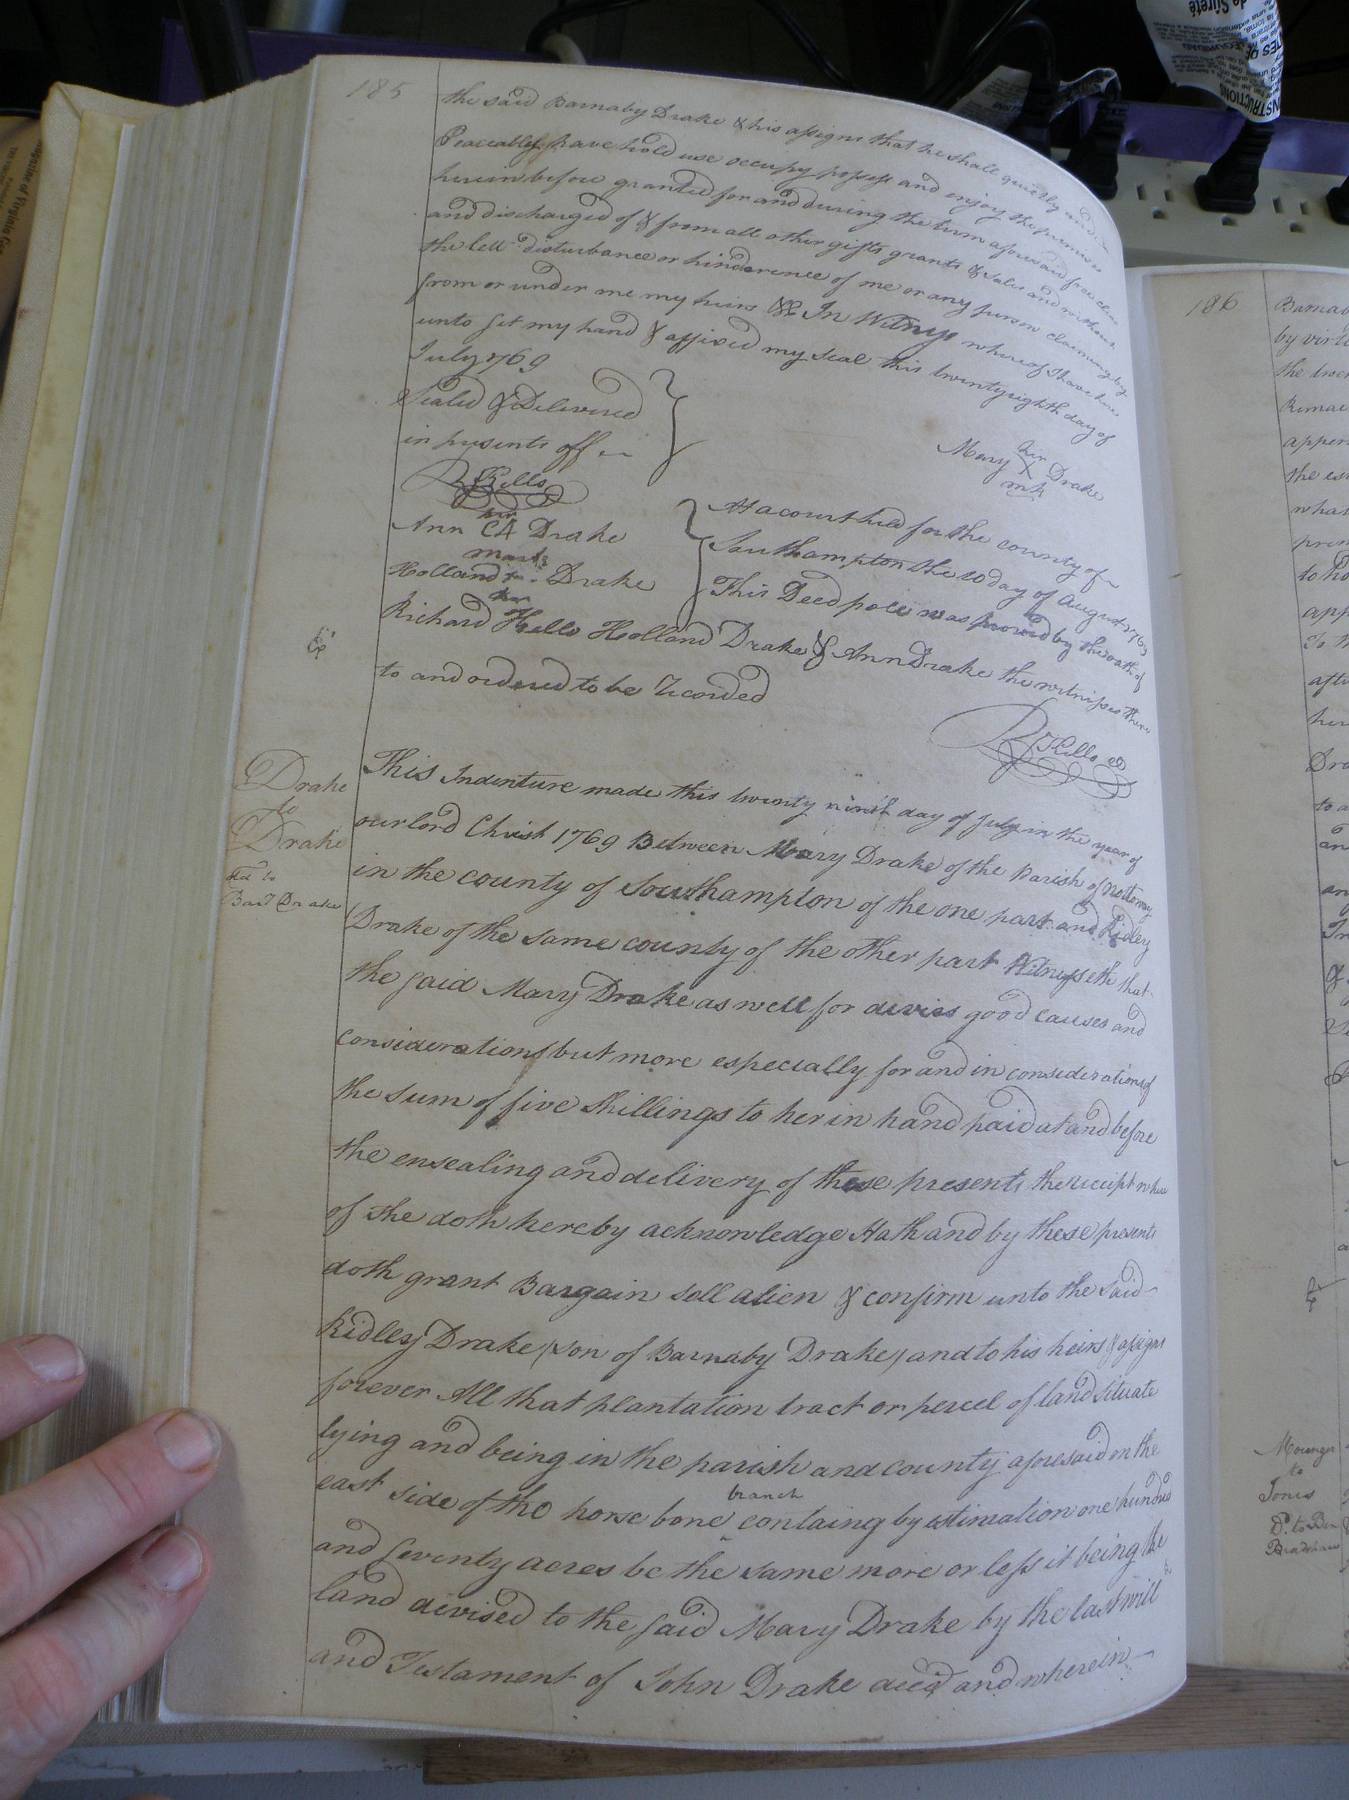 185
the said Barnaby Drake & his assigns that he shall quietly and
Peaceably have hold use occupy possess and enjoy the premises
herein before granted for and during the term aforesaid free clear
and discharged of & from all other gifts grants & sales and without
the lett disturbance or hinderence of me or any person claiming by
from or under me my heirs &c In Witness whereof I have here
unto set my hand & affixed my seal this twenty eighth day of
July 1769
Sealed & Delivered
in presents off
Mary her X mk Drake
R Kello
Ann her CA mark Drake
Holland Drake
At a court held for the county of
Southampton the 10 day of August 1769
This Deed pole was proved by the oath of
Richard Kello Holland Drake & Ann Drake the witnesses there
to and ordered to be Recorded
R Kello
Drake
to
Drake
Bar Drake
This Indenture made this twenty ninth day of July in the year of
our lord Christ 1769 Between Mary Drake of the Parish of Nottoway
in the county of Southampton of the one part and Ridley
Drake of the same county of the other part Witnesseth that
the said Mary Drake as well for divirs good causes and
considerations but more especially for and in consideration of
the sum of five shillings to her in hand paid at and before
the ensealing and delivery of these presents the receipt where
of she doth hereby acknowledge Hath and by these presents
doth grant Bargain sell alien & confirm unto the said
Ridley Drake (son of Barnaby Drake) and to his heirs & assigns
forever All that plantation tract or percel of land situate
lying and being in the parish and county aforesaid on the
east side of the horse bone branch containg by estimation one hundred
and seventy acres be the same more or less it being the
land devised to the said Mary Drake by the last will
and Testament of John Drake decd and wherein
186
Barnab
by virt
the
appe
the
what
to ho
app
To
afte
her
Dra
to a
an
Mounger
to
Jones
Bradshaw